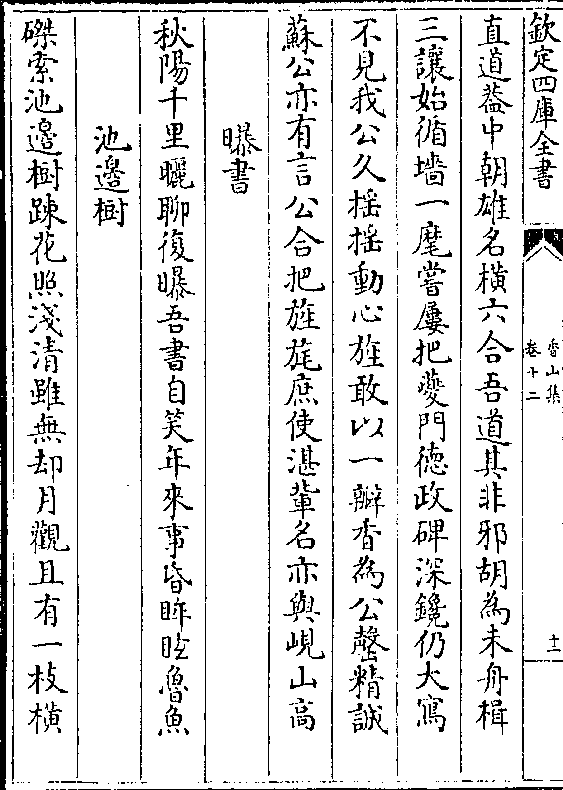 欽定四庫全書
香山集
卷十二
十二
直道葢中朝雄名横六合吾道其非邪胡為未舟楫
三讓始循墙一麾嘗屢把夔門徳政碑深鑱仍大寫
不見我公久揺揺動心旌敢以一瓣香為公罄精誠
蘇公亦有言公合把旌旄庶使湛軰名亦與峴山高
曝書
秋陽千里曬聊復曝吾書自笑年來事昏眸眩魯魚
池邉樹
磔索池邉樹踈花照淺清雖無却月觀且有一枝横